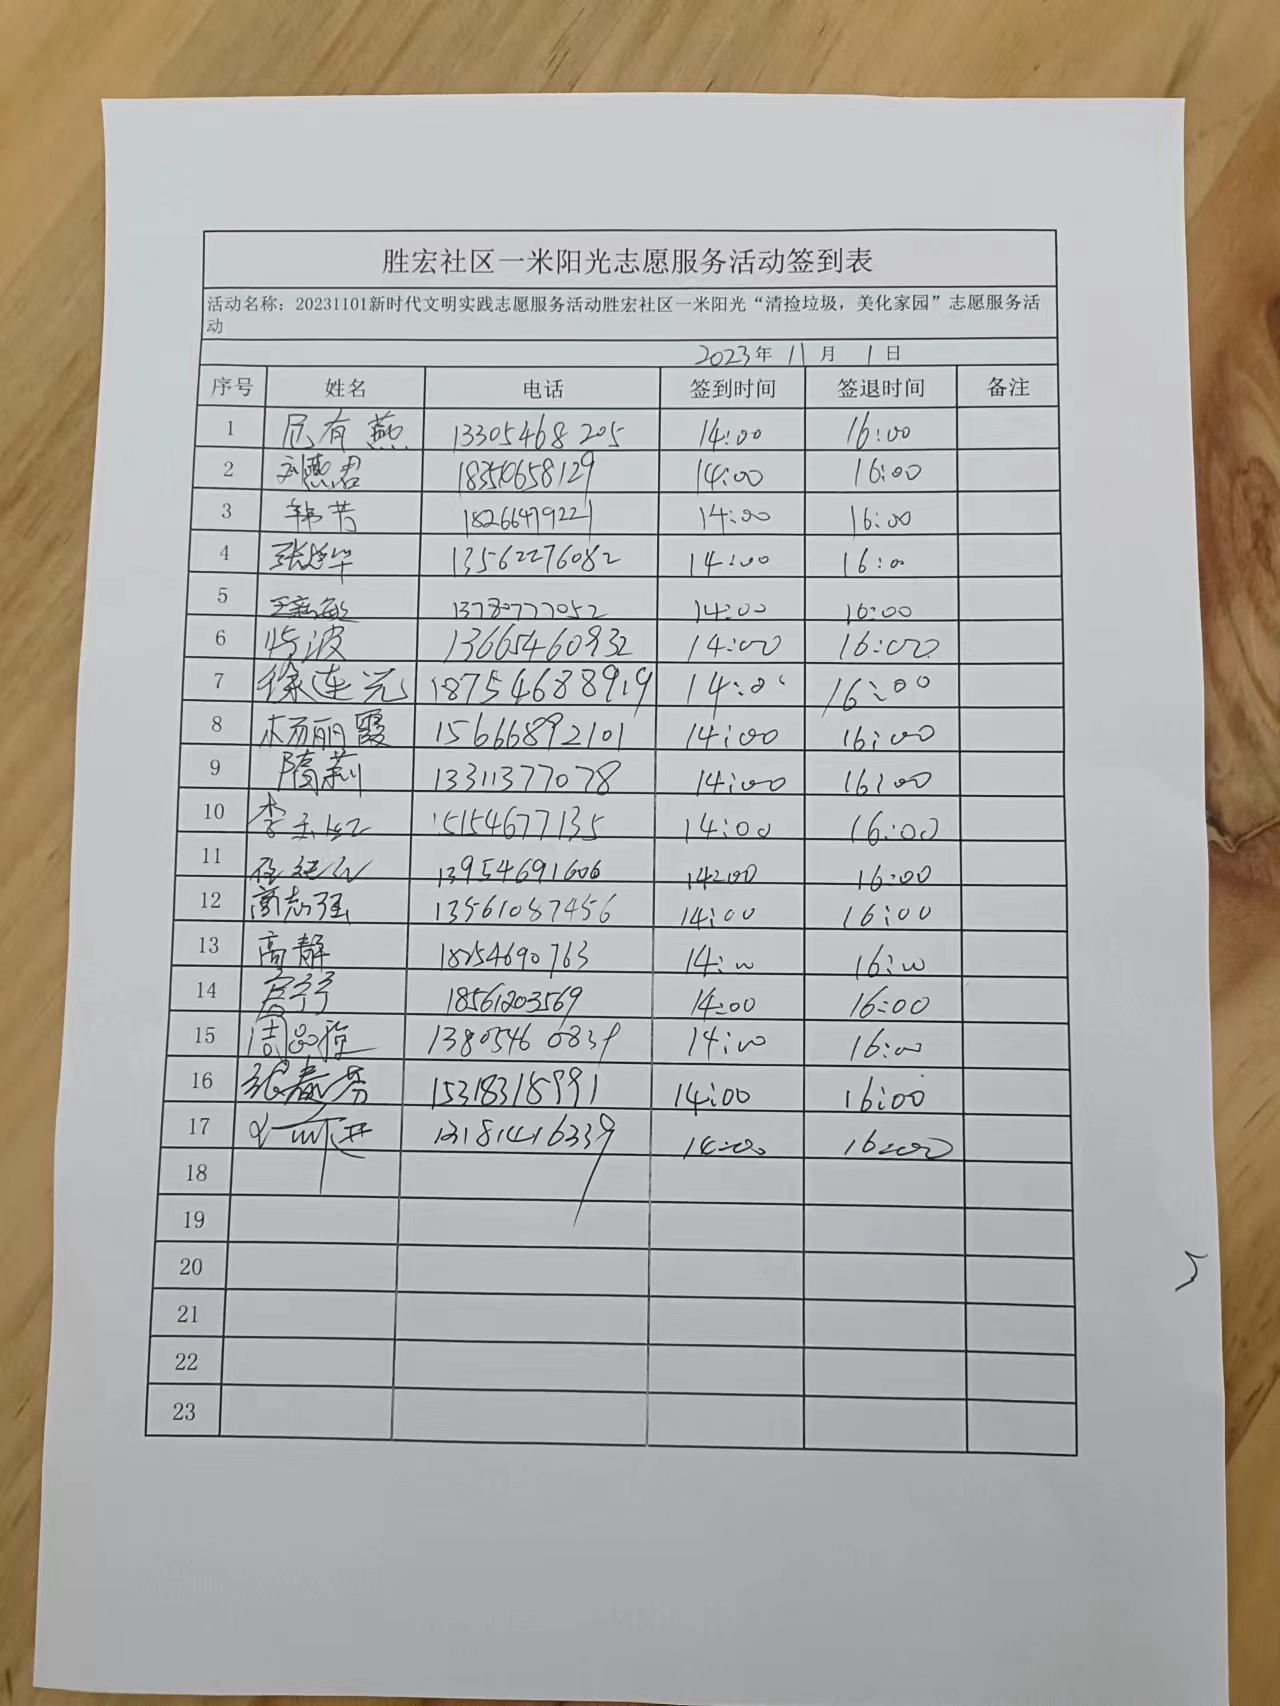 胜宏社区一米阳光志愿服务活动签到表
活动名称：20231101新时代文明实践志愿服务活动胜宏社区一米阳光“清捡垃圾，美化家园”志愿服务活
动
2023年 11月 1日
序号 姓名 电话 签到时间 签退时间 备注
1 有燕 13305468205 14:00 16:00
2 刘燕君 14:00 16:00
3 韩芳 18266479221 14:00 16:00
4 张 华 13562276082 14:00 16:00
5 王 敏 13780777052 14:00 16:00
6 波 13665460932 14:00 16:00
7 徐连光 18754688919 14:00 16:00
8 杨丽霞 15666892101 14:00 16:00
9 隋莉 13311377078 14:00 16:00
10 李玉红 15154677135 14:00 16:00
11 13954691606 14:00 16:00
12 高志强 13561087456 14:00 16:00
13 高静 18254690763 14:00 16:00
14 18561203569 14:00 16:00
15 周 14:00 16:00
16 张春芳 15318318991 14:00 16:00
17 13181416339 14:00 16:00
18
19
20
21
22
23